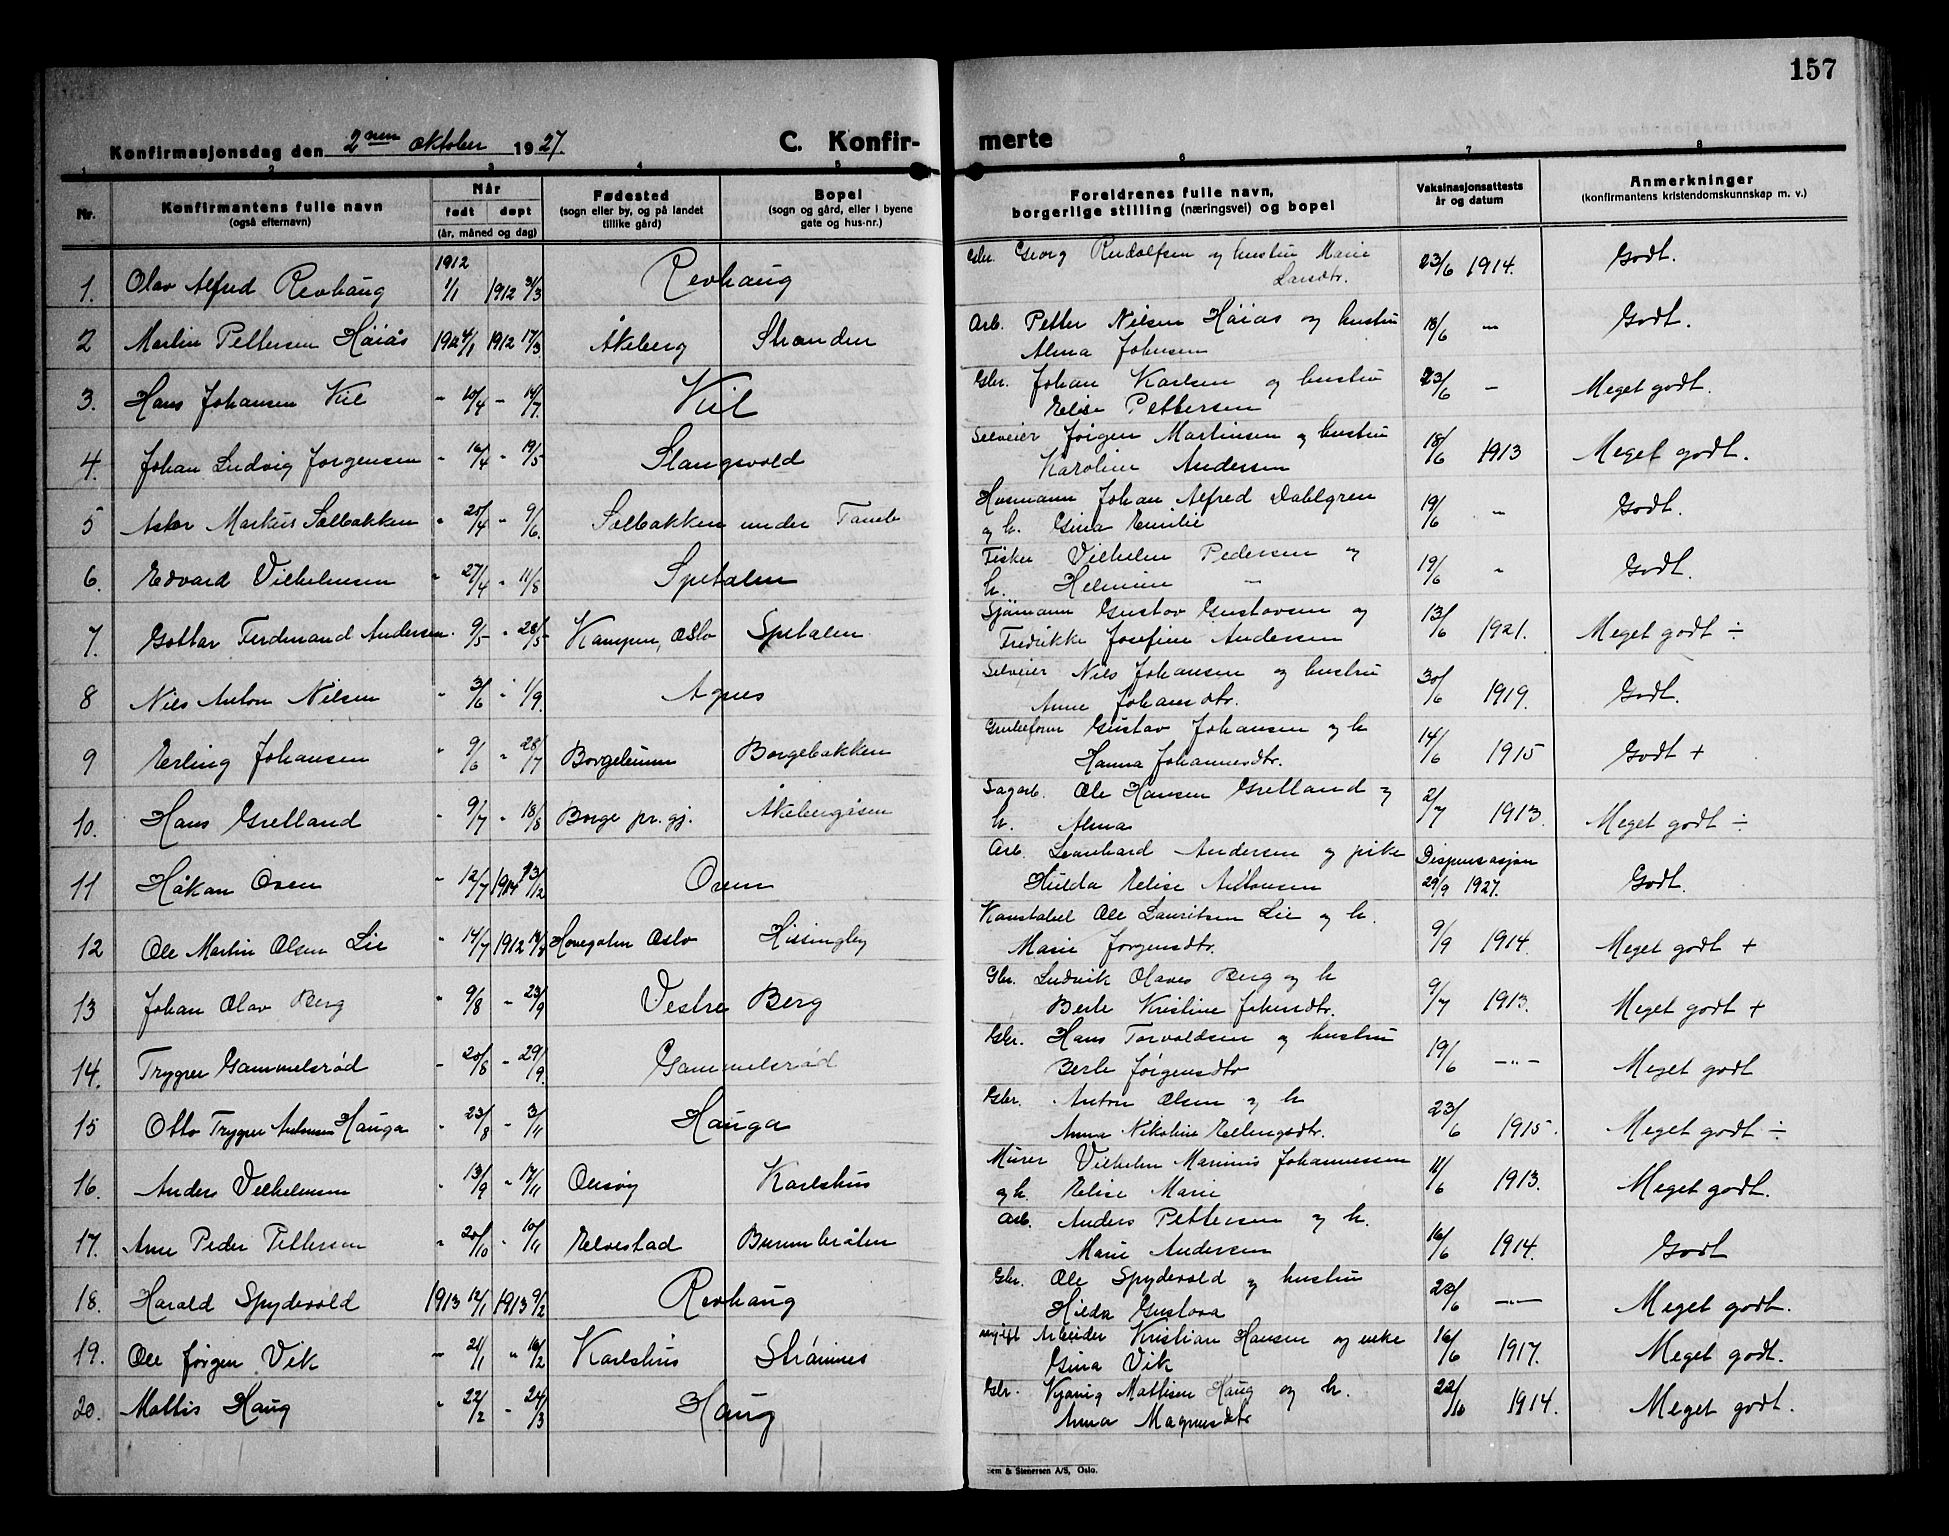 157
Konfirmasjonsdag den 2nen oktober 1927 C. Konfir- merte
1 2 3 4 5 6 7 8
Nr. Konfirmantens fulle navn (også efternavn) Når født døpt (år, måned og dag) Fødested (sogn eller by, og på landet tillike gård) Bopel (sogn og gård, eller i byene gate og hus-nr.) Foreldrenes fulle navn, borgerlige stilling (næringsvei) og bopel Vaksinasjonsattests år og datum Anmerkninger (konfirmantens kristendomskunnskap m. v.)
1. Olav Alfred Revhaug 1912 1/1 1912 31/3 Revhaug Gbr. Georg Rudolfsen og hustru Marie Larsdtr. 23/6 1914. Godt.
2 Martin Pettersen Håiås 1912 4/1 1912 17/3 Åkeberg Stranden Arb. Petter Nilsen Håiås og hustru Alma Johnsen 18/6 — Godt.
3. Hans Johansen Kil - 10/4 - 14/7 Kil Gbr. Johan Karlsen og hustru Elise Pettersen 23/6 - Meget godt.
4. Johan Ludvig Jorgensen - 16/4 - 19/5 Slangsvold Selveier Jørgen Martinsen og hustru Karoline Andersen 18/6 1913 Meget godt.
5 Aslar Markus Solbakken " 20/4 - 9/6. Solbakken under Tomb Husmann Johan Alfred Dahlgren og h. Gina Emilie 19/6 " Godt.
6. Edvard Vilhelmsen " 27/4 - 11/8 Spetalen Fisker Vilhelm Pedersen og h. Helmine 19/6 " Godt.
7. Gottar Ferdinand Andersen. 9/5 - 28/5 Kampen, Oslo Spetalen Sjømann Gustav Gustavsen og Fredrikke Josefine Andersen 13/6 1921. Meget godt ÷
8 Nils Anton Nilsen - 3/6 - 1/9. Agnes Selveier Nils Johansen og hustru Anne Johansdtr. 30/6 1919. Godt.
9 Erling Johansen " 9/6 " 28/7 Borgeleiren Borgebakken Gustav Johansen og h Hanna Johannesdtr. 14/6 1915 Godt +
10. Hans Grelland " 9/7 - 18/8 Borge pr. gj. Åkebergåsen Sagarb. Ole Hansen Grelland og h. Alma 2/7 1913. Meget godt ÷
11 Håkan Osen - 12/7 1914 13/12 Osen Arb. Leonhard Andersen og pike Hulda Elise Antonsen Dispensasjon 29/9 1927. Godt.
12 Ole Martin Olsen Lie " 14/7 1912 Oslo Hissingby Konstabel Ole Lauritsen Lie og h. Marie Jorgensdtr. 9/9 1914. Meget godt +
13 Johan Olav Berg " 9/8 - 23/9 Vestre Berg Gbr. Ludvik Olaves Berg og h Berte Kristine Johnsdtr. 9/7 1913. Meget godt +
14. Trygve Gammelsrød - 20/8 - 29/9. Gammelsrød Gbr. Hans Torvaldsen og hustru Berte Jørgensdtr 19/6 —"— Meget godt
15 Otto Trygve Antonsen Hauga " 23/8 - 3/11 Hauga Gbr. Anton Olsen og h Anna Nikoline Ellingsdtr. 23/6 1915. Meget godt ÷
16. Anders Vilhelmsen " 13/9 " 17/11 Onsøy Karlshus Murer Vilhelm Marinius Johannessen og h. Elise Marie 11/6 1913. Meget godt.
17. Arne Peder Pettersen " 20/10 - 10/11 Elvestad Burumbråten Arb. Anders Pettersen og h. Marie Andersen 16/6 1914. Godt
18. Harald Spydevold 1913 12/1 1913 9/2 Revhaug Gbr. Ole Spydevold og hustru Hilda Gustava 23/6 —"— Meget godt.
19. Ole Jørgen Vik — 21/1 " 16/2 Karlshus Strømnes ugift Arbeider Kristian Hansen og enke Gina Vik 16/6 1917. Meget godt.
20. Mattis Haug " 22/2 - 24/3 Haug Gbr. Mattisen Haug og h. Anna Magnusdtr 22/10 1914. Meget godt.
Sem & Stenersen A/S, Oslo.